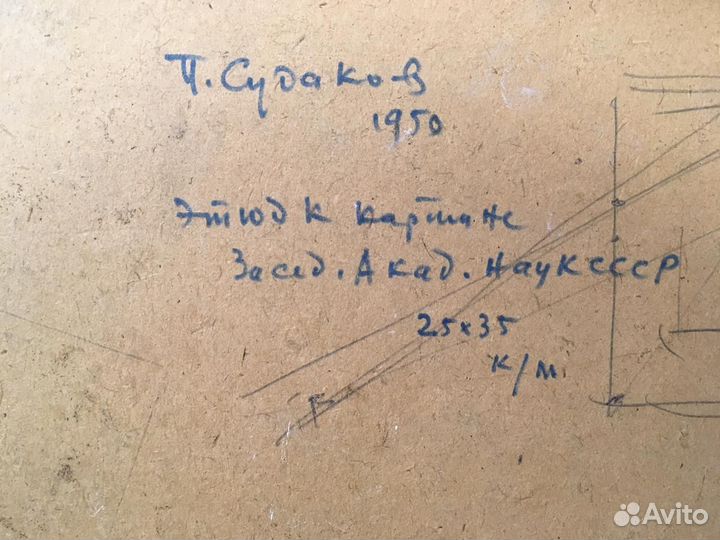 П. Судаков
1950
Этюд к картине
Засед. Акад. Наук СССР
25x35
к/м
Avito